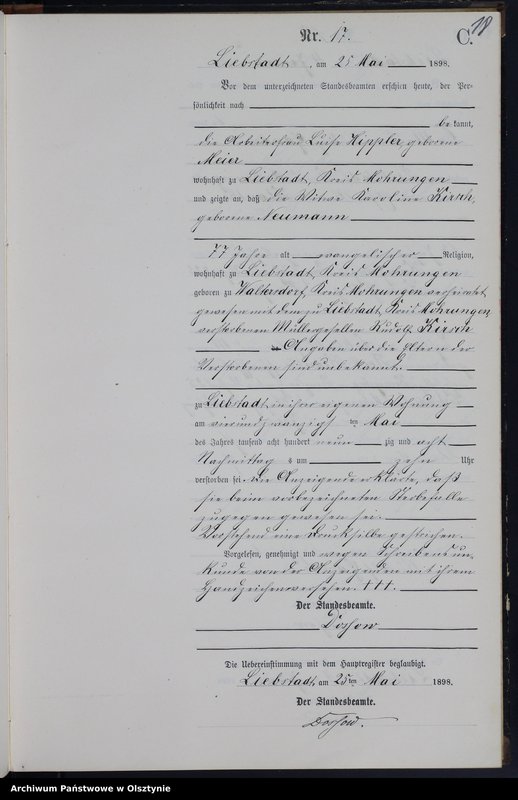 18
Nr. 17. C.
Liebstadt, am 25 Mai 1898.
Vor dem unterzeichneten Standesbeamten erschien heute, der Per-
sönlichkeit nach
bekannt,
die Arbeiterfrau Luise Hippler, geborene
Meier
wohnhaft zu Liebstadt, Kreis Mohrungen
und zeigte an, daß die Witwe Karoline Kirsch,
geborene Neumann
77 Jahre alt evangelischer Religion,
wohnhaft zu Liebstadt, Kreis Mohrungen
geboren zu Waltersdorf, Kreis Mohrungen verheirathet
gewesen mit dem zu Liebstadt, Kreis Mohrungen
verstorbenen Müllergesellen Rudolf Kirsch
Angaben über die Eltern der
Verstorbenen sind unbekannt.
zu Liebstadt, in ihrer eigenen Wohnung
am vierundzwanzigsten Mai
des Jahres tausend acht hundert neunzig und acht
Nachmittags um zehn Uhr
verstorben sei. Die Anzeigende erklärte, daß
sie beim vorbezeichneten Sterbefalle
zugegen gewesen sei.
Vorstehend eine Drucksilbe gestrichen.
Vorgelesen, genehmigt und wegen Schreibensun-
kunde von der Anzeigenden mit ihrem
Handzeichen versehen. †††.
Der Standesbeamte.
Die Uebereinstimmung mit dem Hauptregister beglaubigt.
Liebstadt, am 25ten Mai 1898.
Der Standesbeamte.
Archiwum Państwowe w Olsztynie